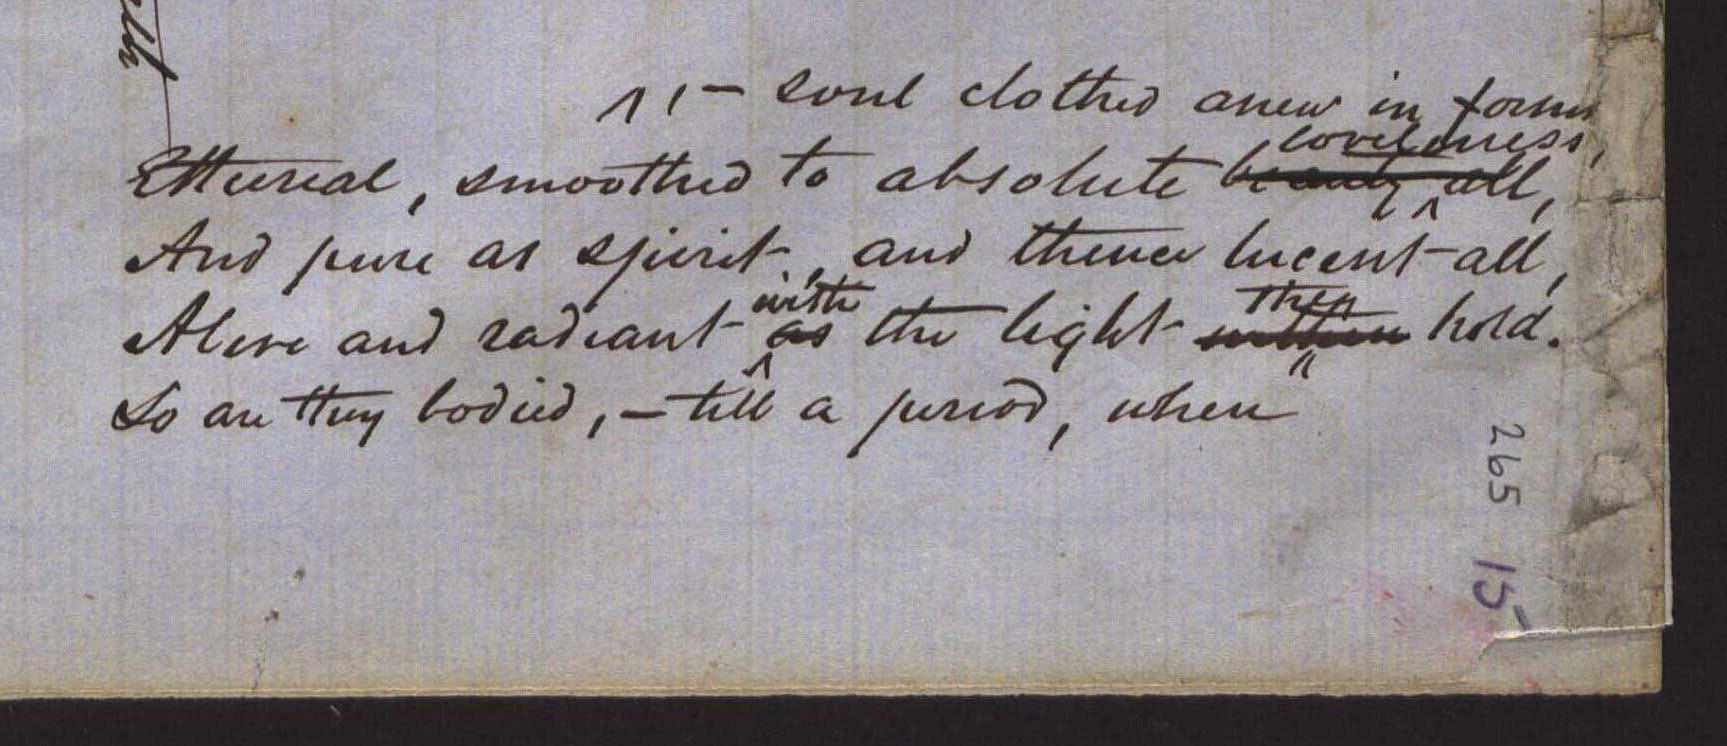 — soul clothed anew in forms
loveliness,
Ethereal, smoothed to absolute beauty all,
And pure as spirit, and thence lucent all,
with then
Alive and radiant as the light within hold.
So are they bodied, — till a period, when
265
15